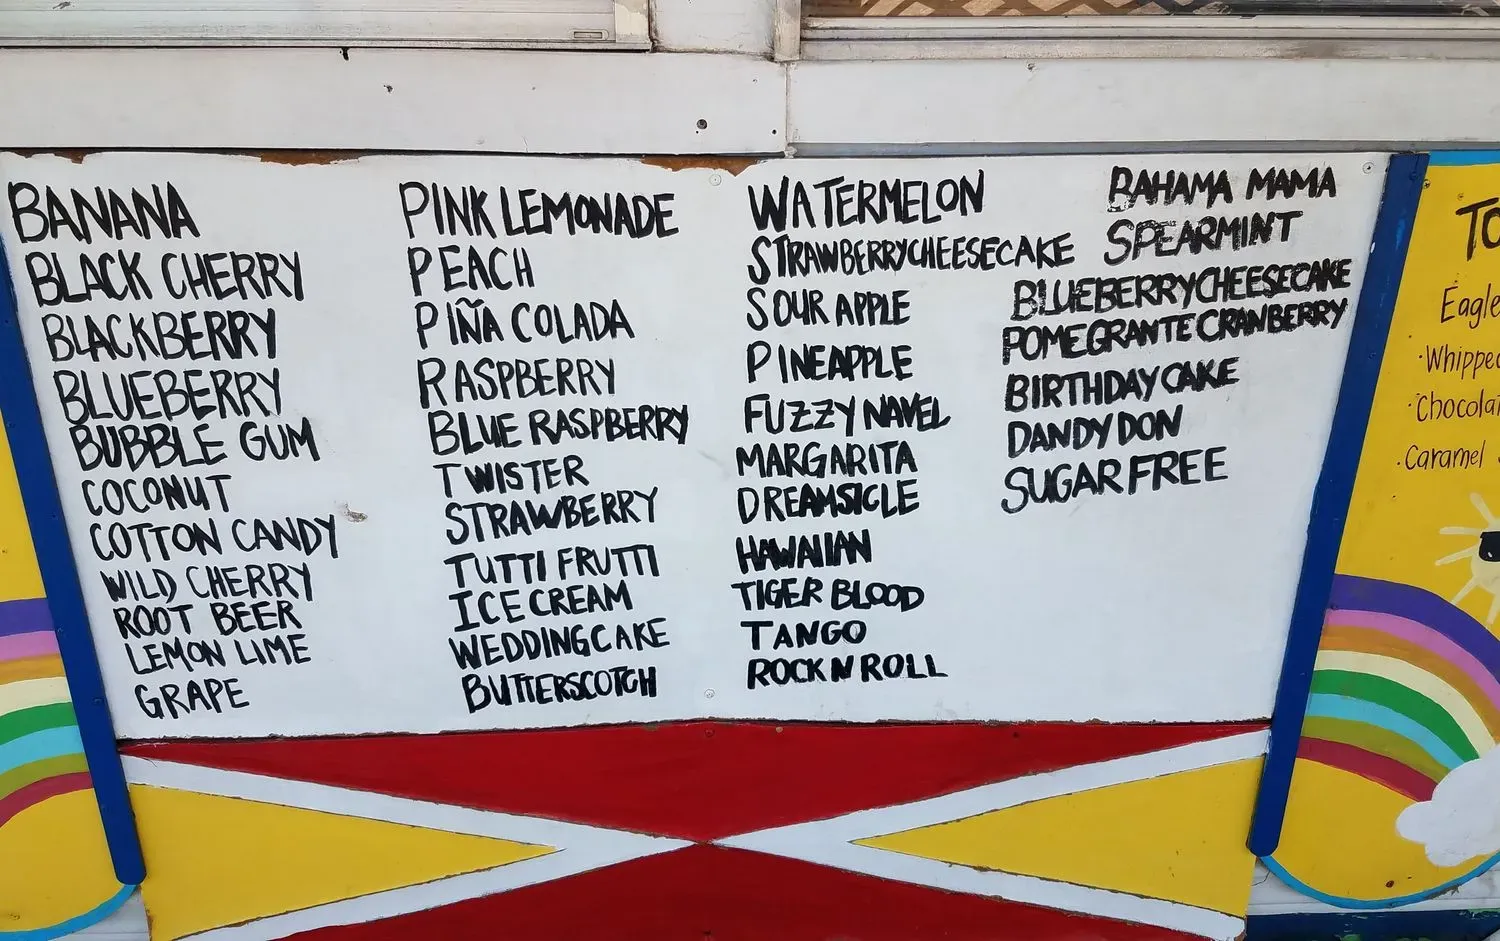 BANANA
BLACK CHERRY
BLACKBERRY
BLUEBERRY
BUBBLE GUM
COCONUT
COTTON CANDY
WILD CHERRY
ROOT BEER
LEMON LIME
GRAPE
PINK LEMONADE
PEACH
PIÑA COLADA
RASPBERRY
BLUE RASPBERRY
TWISTER
STRAWBERRY
TUTTI FRUTTI
ICE CREAM
WEDDING CAKE
BUTTERSCOTCH
WATERMELON
STRAWBERRY CHEESECAKE
SOUR APPLE
PINEAPPLE
FUZZY NAVEL
MARGARITA
DREAMSICLE
HAWAIIAN
TIGER BLOOD
TANGO
ROCK N ROLL
BAHAMA MAMA
SPEARMINT
BLUEBERRY CHEESECAKE
POMEGRANTE CRANBERRY
BIRTHDAY CAKE
DANDY DON
SUGAR FREE
Eagle
·Whipped
·Chocolat
·Caramel